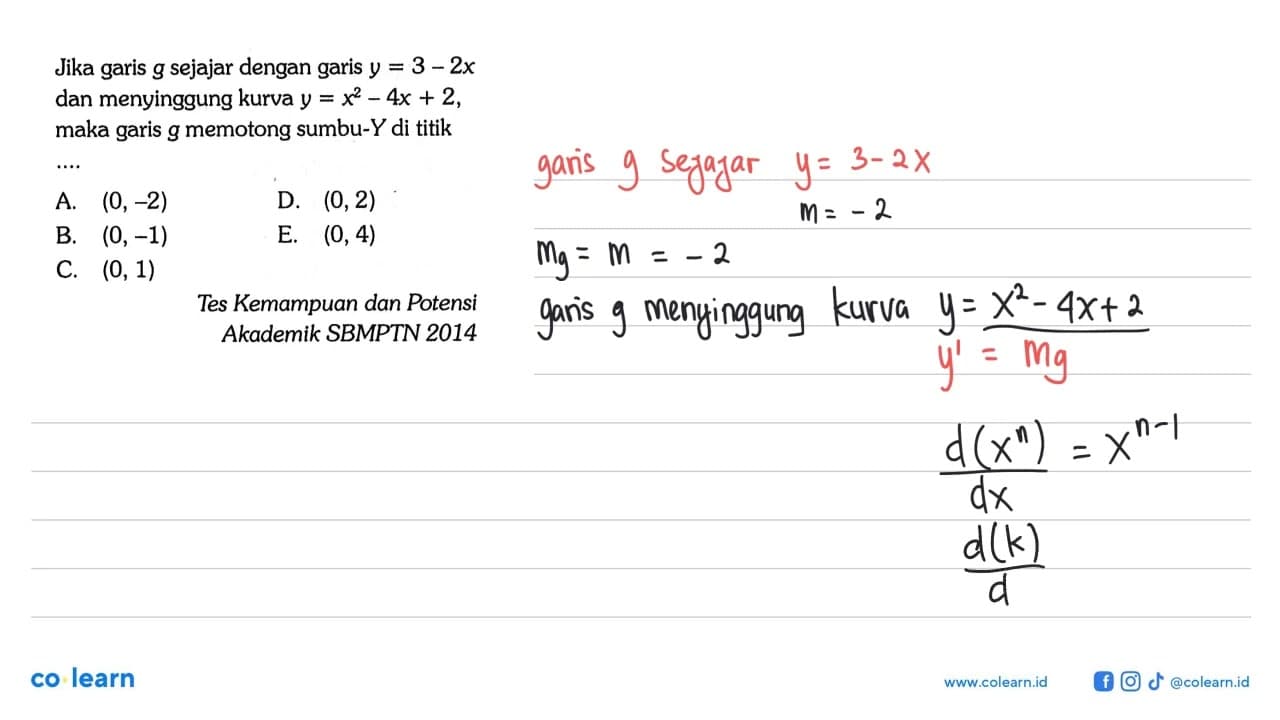 Jika garis g sejajar dengan garis y = 3 – 2x
dan menyinggung kurva y = x² – 4x + 2,
maka garis g memotong sumbu-Y di titik
....
A. (0, –2) D. (0, 2)
B. (0, –1) E. (0, 4)
C. (0, 1)
Tes Kemampuan dan Potensi
Akademik SBMPTN 2014
garis g sejajar y = 3 - 2x
m = - 2
mg = m = - 2
garis g menyinggung kurva y = x² - 4x + 2
y' = mg
d(xⁿ)/dx = xⁿ⁻¹
d(k)/d
co·learn
www.colearn.id
@colearn.id